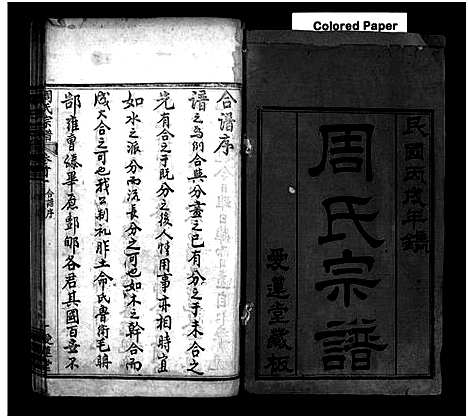 Colored Paper
民國丙戌年鐫
周氏宗譜
愛蓮堂藏板
合譜序
譜之為例合與分盡之已有分之于未合之
先有合之于既分之後人情用事亦相時宜
如水之派分而流長分之可也如木之幹合而
成大合之可也我公制禮胙土命氏魯衛毛聃
郜雍曹滕畢原酆郇各君其國百世不
周氏宗譜
合譜序
愛蓮堂